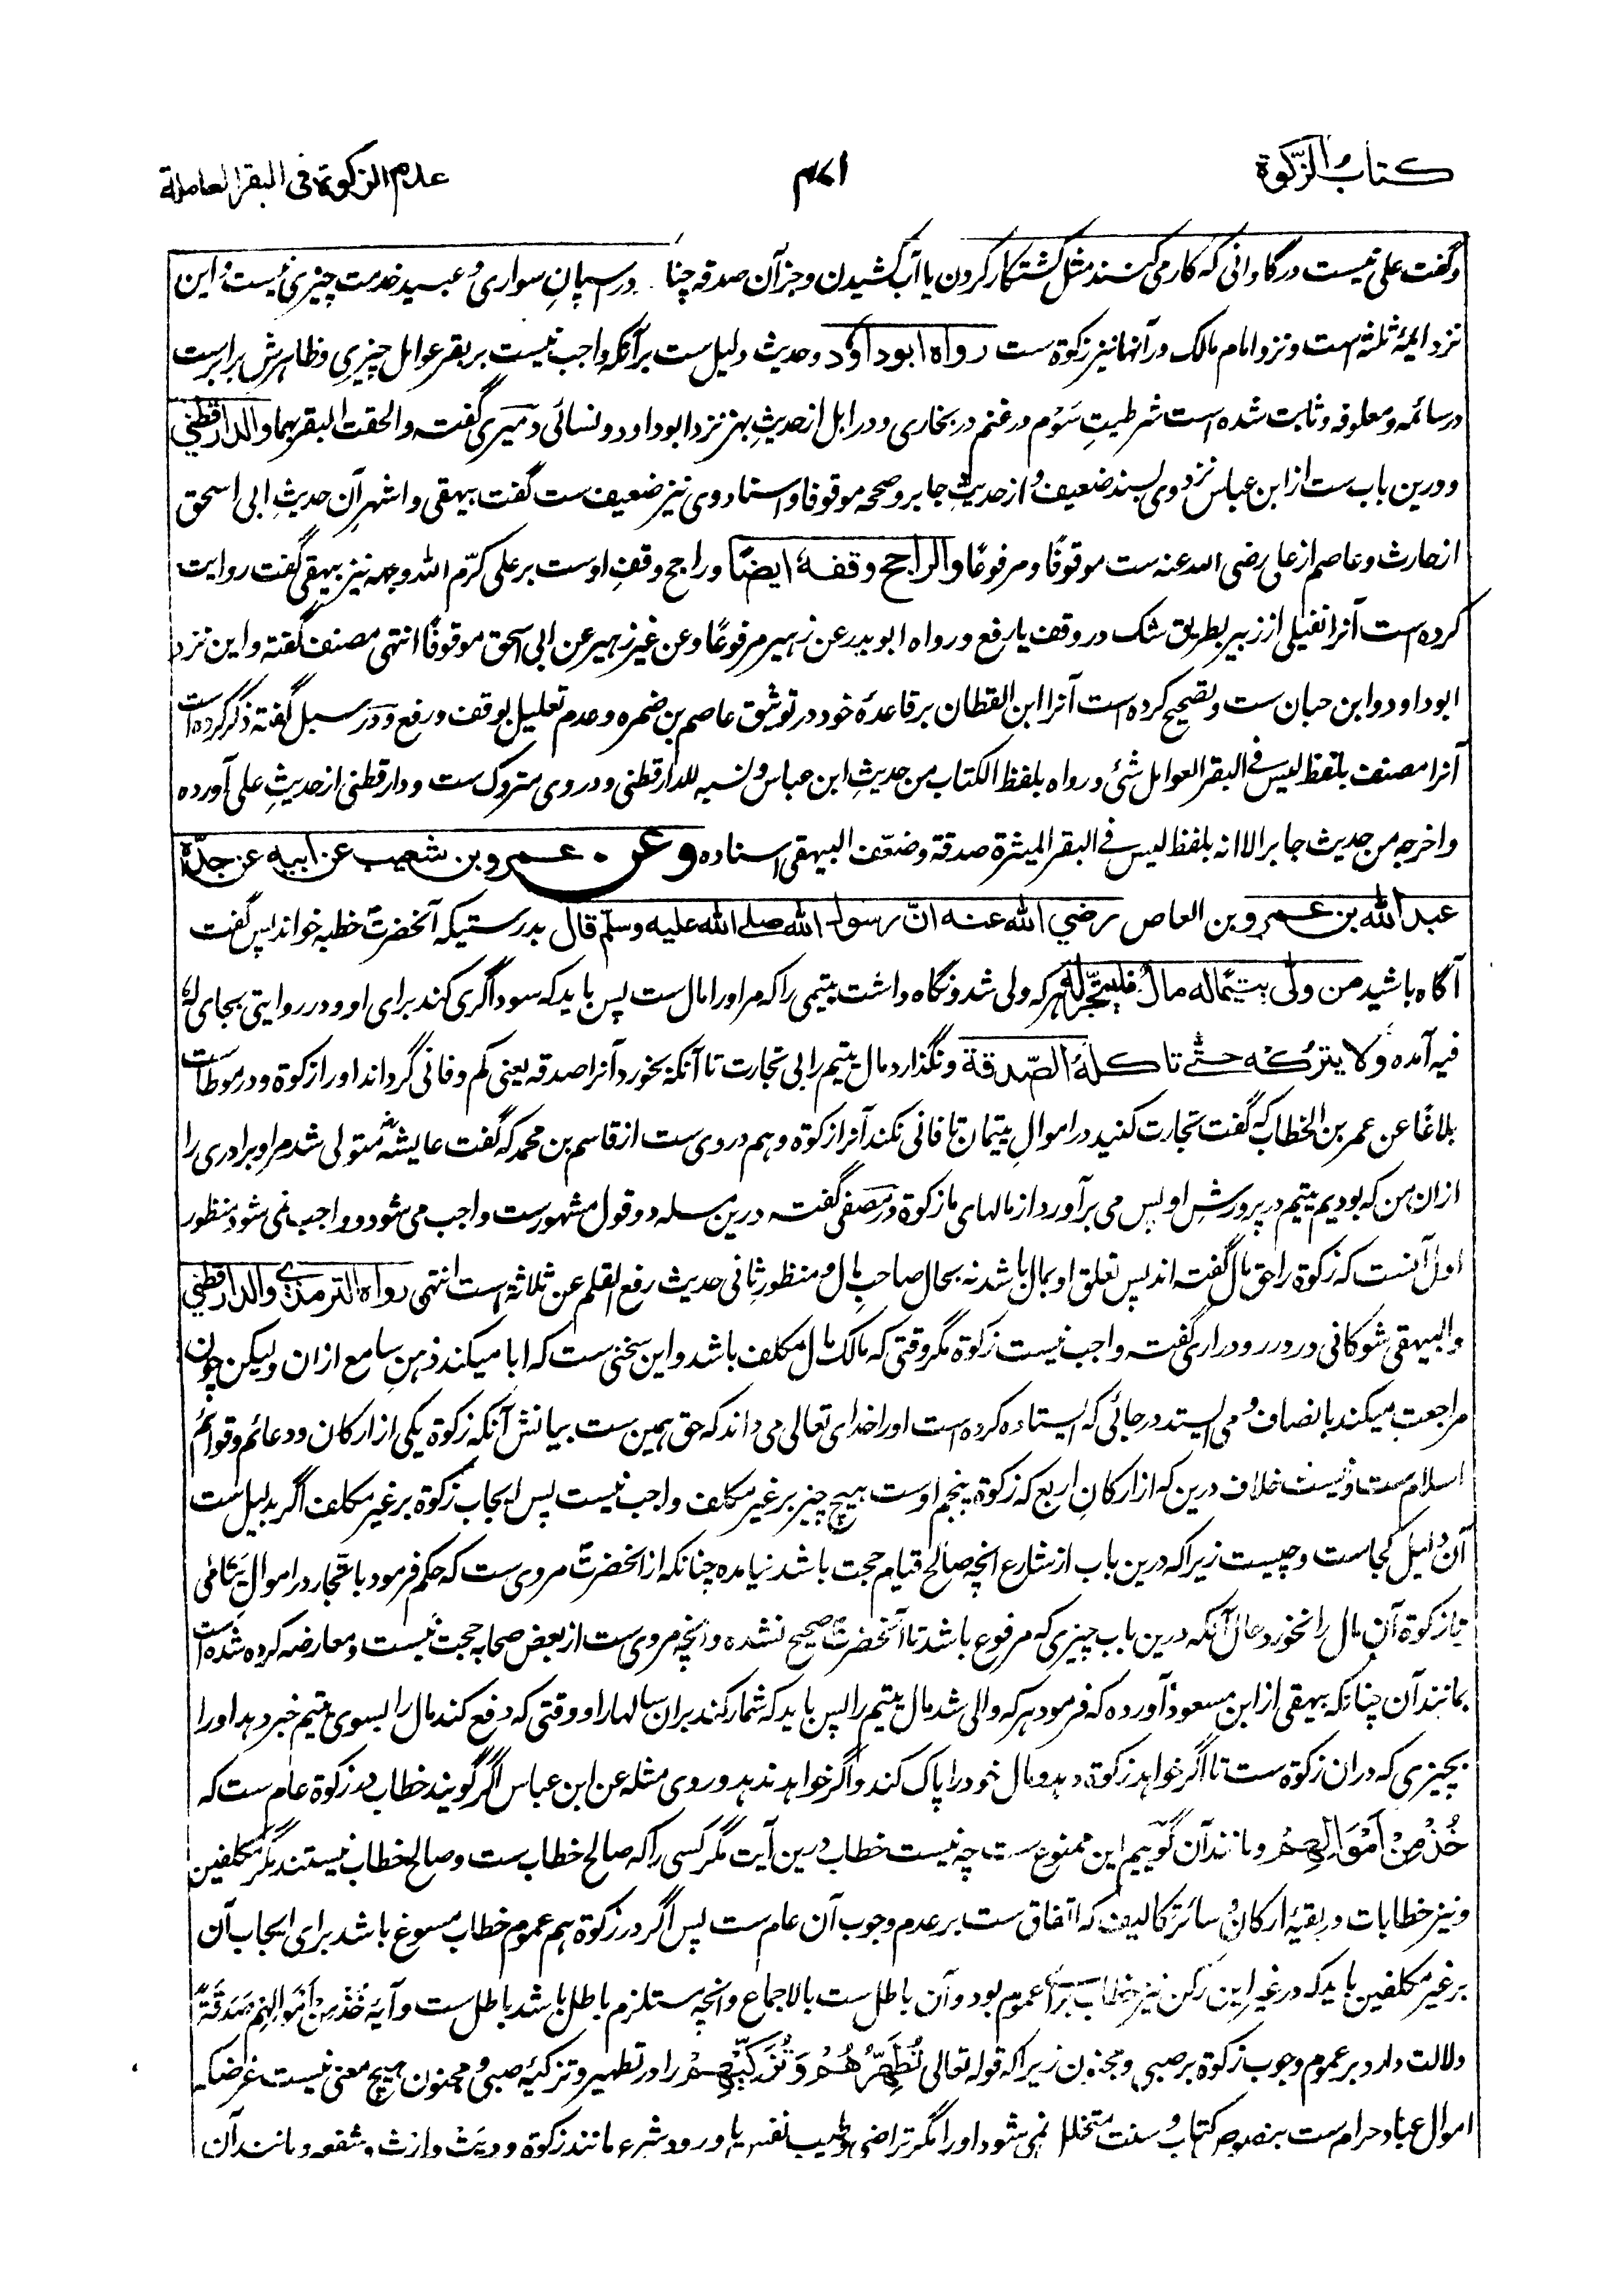 كتاب الزكوة
۴۷۱
عدم الزكوة فى البقر العاملة
وگفت علی نیست در گاوانی که کار می کنند مثل کشتکار کردن یا آب کشیدن و جز آن صدقه چنا در اسپانِ سواری و عبید خدمت چیزی نیست و این
نزد ایمۀ ثلثه است و نزد امام مالک در آنها نیز زکوة ست رواه ابو داؤد و حدیث دلیل ست بر آنکه واجب نیست بر بقر عوامل چیزی و ظاهرش برابرست
در سائمه و معلوفه و ثابت شده است شرطیتِ سَوْم در غنم در بخاری و در ابل از حدیثِ بهز نزد ابو داود و نسائی دمیری گفته والحقت البقر بهما والدارقطني
و درین باب ست از ابن عباس نزد وی بسند ضعیف و از حدیثِ جابر و صححه موقوفا و اسناد وی نیز ضعیف ست گفت بیهقی و اشهر آن حدیثِ ابی اسحق
از حارث و عاصم از علی رضی الله عنه ست موقوفًا و مرفوعًا والراجح وقفه ایضًا و راجح وقفِ اوست بر علی کرّم الله وجهه نیز بیهقی گفت روایت
کرده ست آنرا نفیلی از زبیر بطریق شک در وقف یا رفع و رواه ابو بدر عن زهیر مرفوعًا و عن غیر زهیر عن ابی اسحق موقوفًا انتهی مصنف گفته و این نزد
ابو داود و ابن حبان ست و تصحیح کرده است آنرا ابن القطان بر قاعدۀ خود در توثیق عاصم بن ضمره و عدم تعلیل بوقف و رفع و در سبل گفته ذکر کرده است
آنرا مصنف بلفظ لیس فی البقر العوامل شئ و رواه بلفظ الکتاب من حدیثِ ابن عباس و نسبه للدارقطنی و در وی متروک ست و دارقطنی از حدیثِ علی آورده
و اخرجه من حدیث جابر الا انه بلفظ لیس فی البقر المثیرة صدقة و ضعّف البیهقی اسناده وعن عمرو بن شعيب عن ابيه عن جدّه
عبد الله بن عمرو بن العاص رضي الله عنه انّ رسول الله صلے الله عليه وسلم قال بدرستیکه آنحضرت خطبه خواند پس گفت
آگاه باشید من ولی یتیما له مالٌ فلیتّجر له هر که ولی شد و نگاه داشت یتیمی را که مر او را مال ست پس باید که سوداگری کند برای او و در روایتی بجای له
فیه آمده ولا يتركه حتّى تاكله الصّدقة و نگذارد مال یتیم را بی تجارت تا آنکه بخورد آنرا صدقه یعنی کم و فانی گرداند او را زکوة و در موطاست
بلاغًا عن عمر بن الخطاب که گفت تجارت کنید در اموالِ یتیمان تا فانی نکند آنرا زکوة و هم در وی ست از قاسم بن محمد که گفت عایشه متولی شد مرا و برادری را
ازان من که بودیم یتیم در پرورشِ او پس می برآورد از مالهای ما زکوة در مصفی گفته درین مسله دو قول مشهورست واجب می شود و واجب نمی شود منظور
اول آنست که زکوة را حق مال گفته اند پس تعلق او بمال باشد نه بحال صاحبِ مال و منظورِ ثانی حدیث رفع القلم عن ثلاثه است انتهی رواه الترمذي والدارقطني
والبیهقی شوکانی در درر و دراری گفته واجب نیست زکوة مگر وقتی که مالک مال مکلف باشد و این سخنی ست که ابا میکند ذهنِ سامع ازان و لیکن چون
مراجعت میکند بانصاف و می ایستد در جائی که ایستاده کرده است او را خدای تعالی می داند که حق همین ست بیانش آنکه زکوة یکی از ارکان و دعائم و قوائم
اسلام ست و نیست خلاف درین که از ارکانِ اربع که زکوة پنجم اوست هیچ چیز بر غیر مکلف واجب نیست پس ایجاب زکوة بر غیر مکلف اگر بدلیل ست
آن دلیل کجاست و چیست زیرا که درین باب از شارع انچه صالح قیام حجت باشد نیامده چنانکه از آنحضرت مروی ست که حکم فرمود باتّجار در اموالِ یتامٰی
تا زکوة آن مال را نخورد حال آنکه درین باب چیزی که مرفوع باشد تا آنحضرت صحیح نشده و انچه مروی ست از بعض صحابه حجت نیست و معارضه کرده شده است
بمانند آن چنانکه بیهقی از ابن مسعود آورده که فرمود هر که والی شد مال یتیم را پس باید که شمار کند بران سالها را و وقتی که دفع کند مال را بسوی یتیم خبر دهد او را
بچیزی که دران زکوة ست تا اگر خواهد زکوة دهد و مال خود را پاک کند و اگر خواهد ندهد و روی مثله عن ابن عباس اگر گویند خطاب در زکوة عام ست که
خُذْ مِنْ اَمْوَالِهِمْ و مانند آن گوییم این ممنوع ست چه نیست خطاب درین آیت مگر کسی را که صالح خطاب ست و صالح خطاب نیستند مگر مکلفین
و نیز خطابات در بقیۀ ارکان و سائر تکالیف که اتفاق ست بر عدم وجوب آن عام ست پس اگر در زکوة هم عموم خطاب مسوغ باشد برای ایجاب آن
بر غیر مکلفین باید که در غیر این رکن نیز خطاب برای عموم بود و آن باطل ست بالاجماع و انچه مستلزم باطل باشد باطل ست و آیه خُذْ مِنْ اَمْوَالِهِمْ صَدَقَةً
دلالت دارد بر عموم وجوب زکوة بر صبی و مجنون زیرا که قوله تعالی تُطَهِّرُهُمْ وَتُزَكِّيْهِمْ را در تطهیر و تزکیۀ صبی و مجنون هیچ معنی نیست غرضکه
اموال عباد حرام ست بنصوصِ کتاب و سنت متخلل نمی شود او را مگر تراضی و طیب نفس یا ورود شرع مانند زکوة و دیت و وارث و شفعه و مانند آن